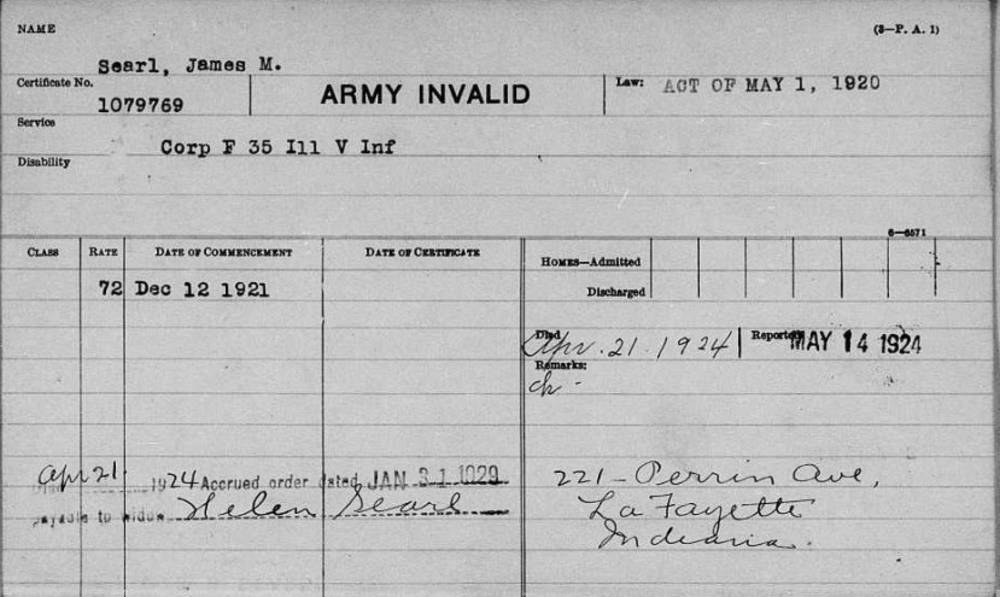 NAME
(3—P. A. 1)
Searl, James M.
Certificate No.
1079769
ARMY INVALID
Law: ACT OF MAY 1, 1920
Service
Corp F 35 Ill V Inf
Disability
6—6571
CLASS RATE DATE OF COMMENCEMENT DATE OF CERTIFICATE
HOMES—Admitted
Discharged
72 Dec 12 1921
Died Apr. 21. 1924 Reported MAY 14 1924
Remarks:
ck -
Apr 21 1924 Accrued order dated JAN 31 1929
payable to widow Helen Searl
221 - Perrin Ave,
La Fayette
Indiana.